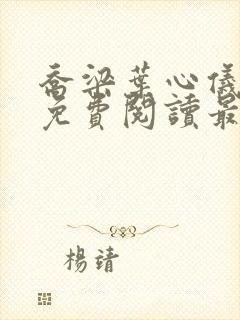 喬梁葉心儀
免費閱讀最
楊靖